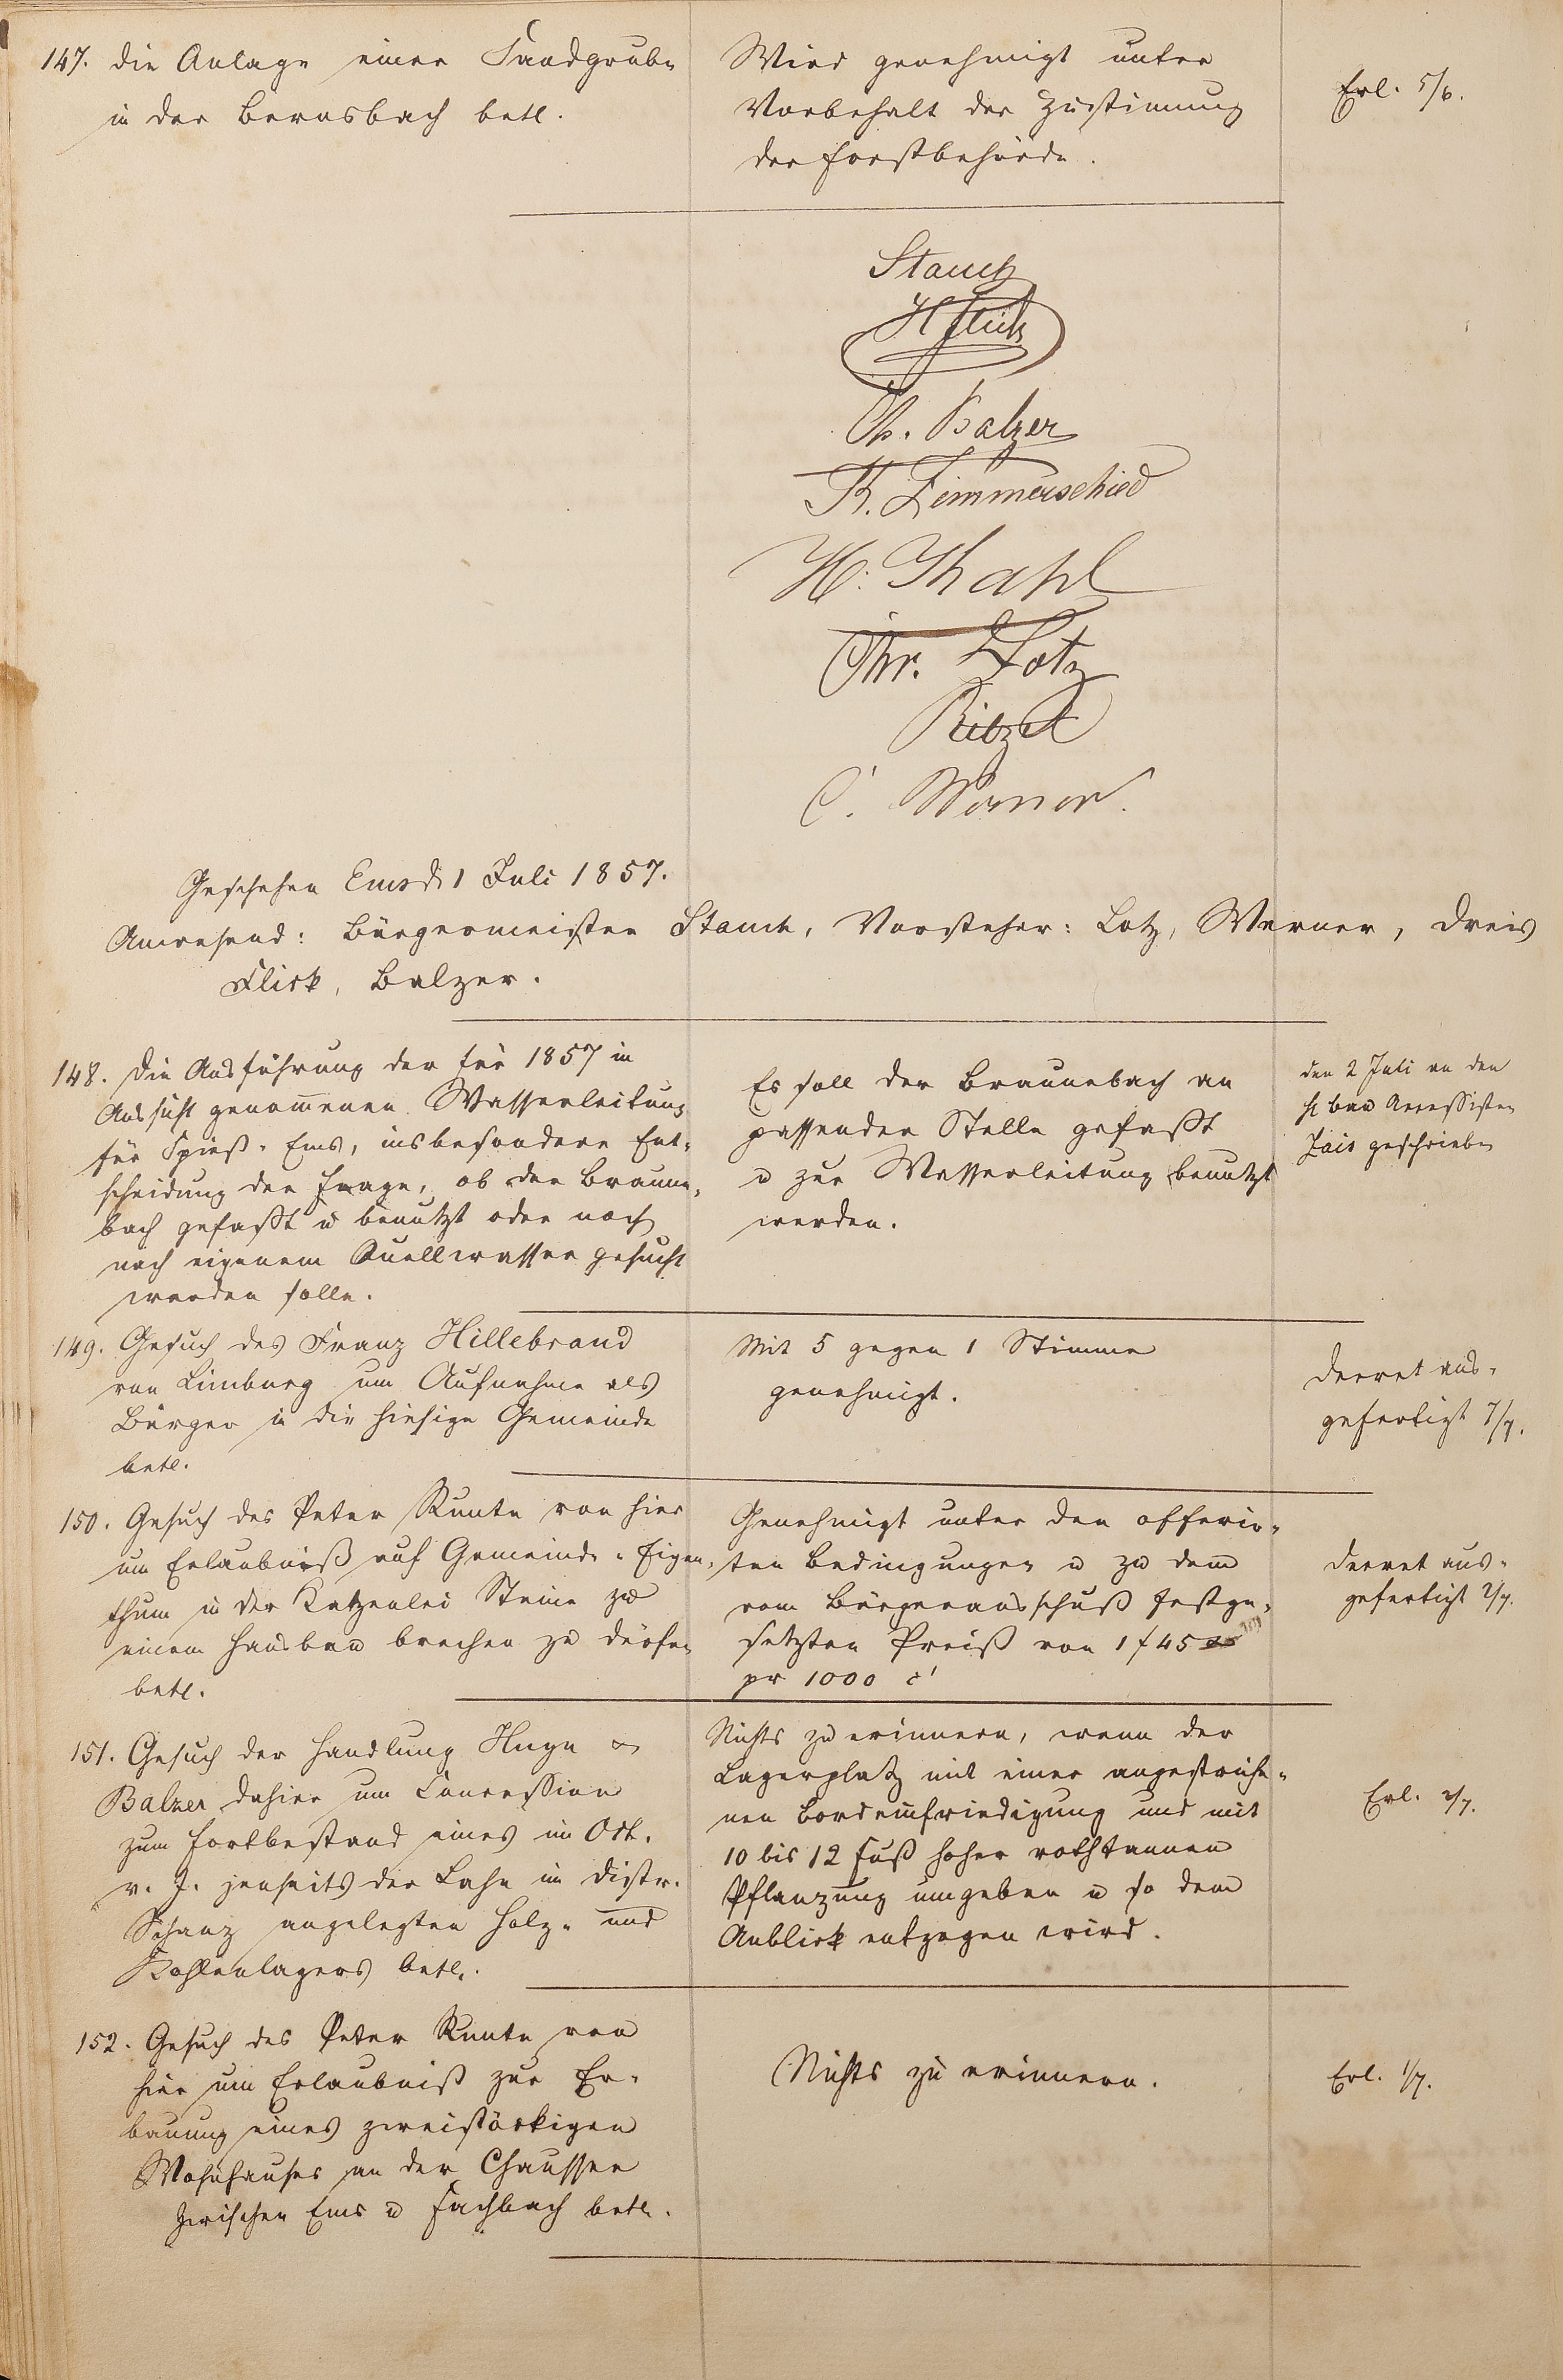 147. die Anlage einer Sandgrube
in der Bernsbach betl.
Wird genehmigt unter
Vorbehalt der Zustimmung
der Forstbehörde.
Erl. 5/6.
Stauch
H Flück
Ch. Balzer
K. Zimmerschied
H. Thapl
Chr. Lotz
C. Werner.
Geschehen Ems d. 1 Juli 1857.
Anwesend: Bürgermeister Stauch, Vorsteher: Lotz, Werner, Dreis
Flick, Balzer.
148. die Ausführung der für 1857 in
Aussicht genom̄enen Wasserleitung
für Spieß-Ems, insbesondere Ent-
scheidung der Frage, ob der Braune-
bach gefaßt u benutzt oder noch
nach eigenem Quellwasser gesucht
werden solle.
Es soll der Braunebach an
passender Stelle gefaßt
u zur Wasserleitung benutzt
werden.
den 2 Juli an den
H Bau Accessisten
Zais geschrieben
149. Gesuch des Franz Hillebrand
von Limburg um Aufnahme als
Bürger in die hiesige Gemeinde
betl.
Mit 5 gegen 1 Stimme
genehmigt.
Decret aus-
gefertigt 7/7.
150. Gesuch des Peter Kunte von hier
um Erlaubniß auf Gemeinde-Eigen-
thum in der Katzenlei Steine zu
einem Hausbau brechen zu dürfen
betl.
Genehmigt unter den offerir-
ten Bedingungen u zu dem
vom Bürgerausschuß festge-
setzten Preiß von 1 f 45
pr 1000 c'
Decret aus-
gefertigt 2/7.
151. Gesuch der Handlung Huyn &
Balzer dahier um Concession
zum Fortbestand eines im Okt.
v. J. jenseits der Lahn im Distr.
Schanz angelegten Holz- und
Kohlenlagers betl.
Nichts zu erinnern, wenn der
Lagerplatz mit einer angestriche-
nen Bordeinfriedigung und mit
10 bis 12 Fuß hoher rothtannen
Pflanzung umgeben u so dem
Anblick entzogen wird.
Erl. 2/7.
152. Gesuch des Peter Kunte von
hier um Erlaubniß zur Er-
bauung eines zweistöckigen
Wohnhauses an der Chaussee
zwischen Ems u Fachbach betl.
Nichts zu erinnern.
Erl. 1/7.